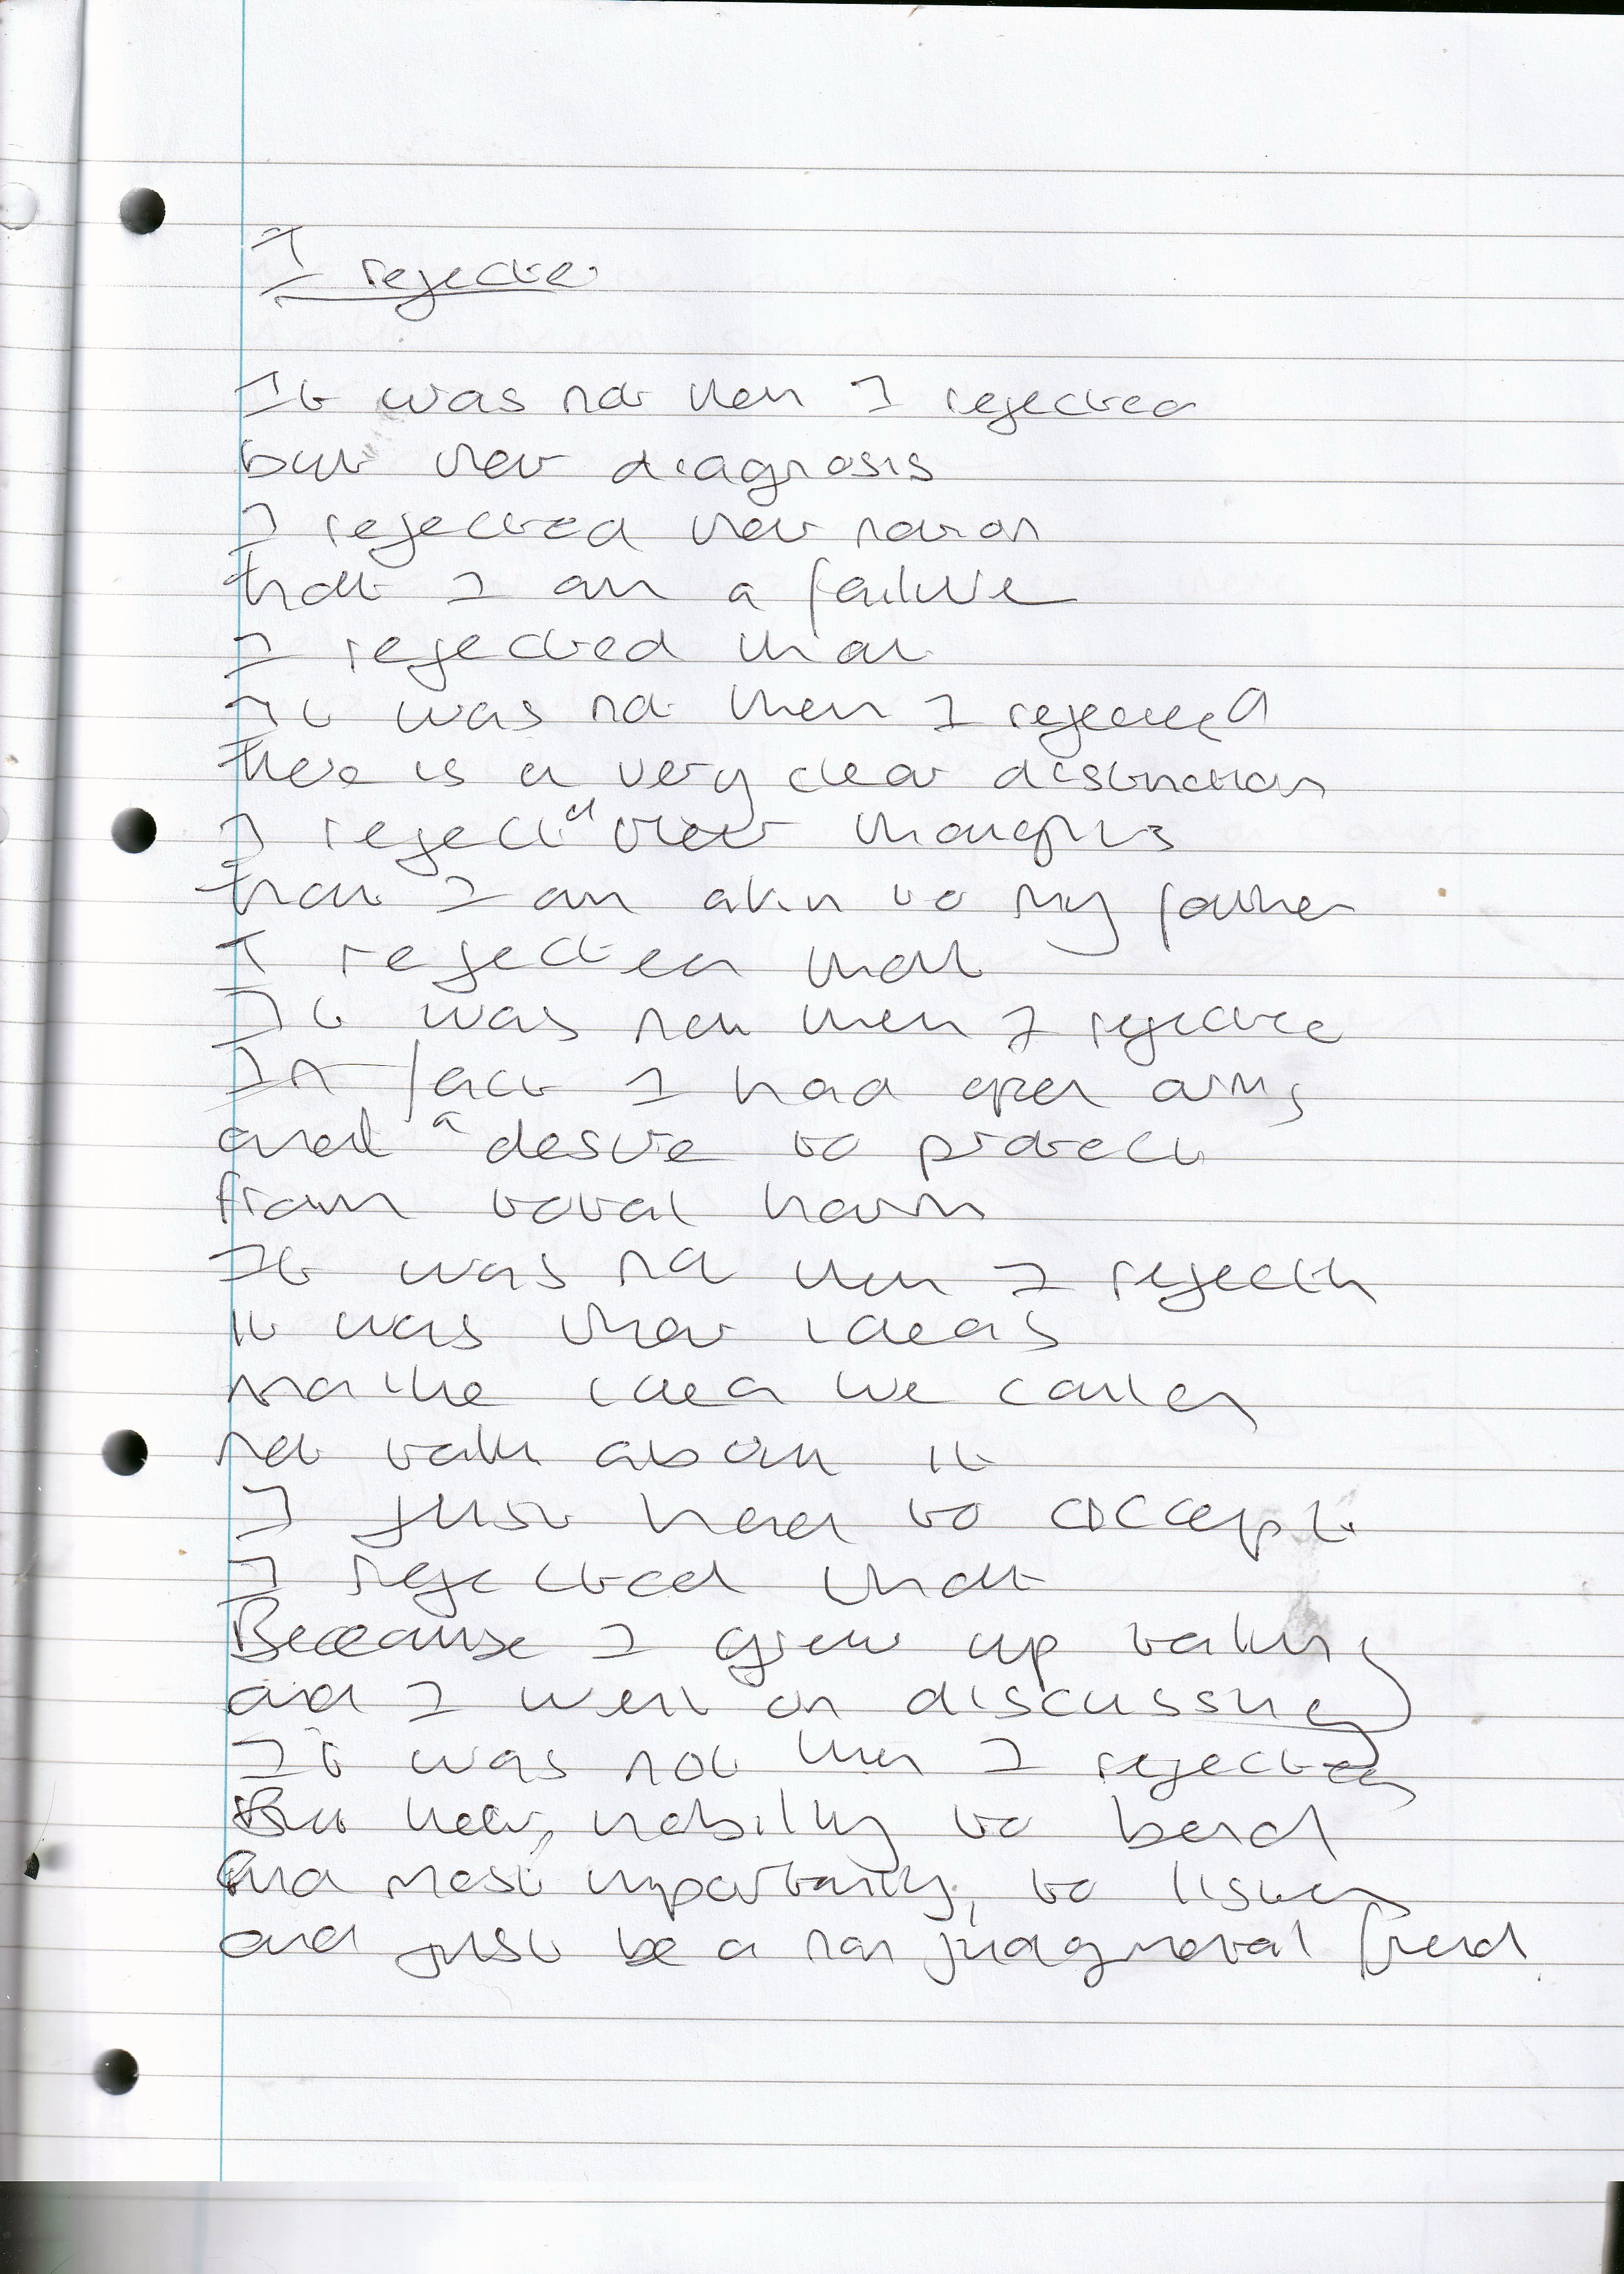 I rejected
It was not them I rejected
but their diagnosis
I rejected their notion
that I am a failure
I rejected that
It was not them I rejected
there is a very clear distinction
I rejected their thoughts
that I am akin to my father
I rejected that
It was not them I rejected
In fact I had open arms
and a desire to protect
from total harm
It was not them I rejected
it was their ideas
the idea we could
not talk about it
I just had to accept
I rejected that
Because I grew up talking
and I went on discussing
It was not them I rejected
But their, inability to bend
and most importantly, to listen
and just be a non judgmental friend